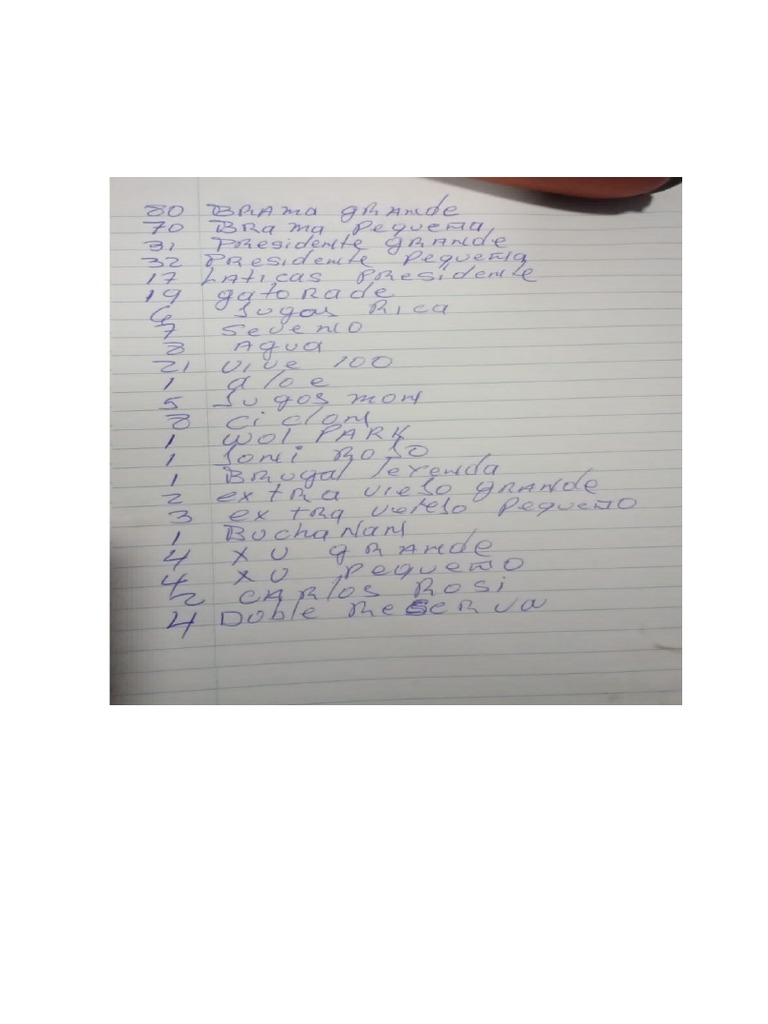 80 BRAMA GRANDE
70 BRAMA PEQUEÑA
31 PRESIDENTE GRANDE
32 PRESIDENTE PEQUEÑA
17 LATICAS PRESIDENTE
19 gatoRade
6 Jugos RICA
7 SEVENO
8 AGUA
21 VIVE 100
1 aloe
5 Jugos MON
8 CICLON
1 WOL PARK
1 JONI ROJO
1 BRUGAL leyenda
2 extRa viejo GRANDE
3 extRa Pequeño
1 BuchaNaN
4 XU gRANDE
4 XU PEQUEÑO
2 CARLOS ROSI
4 Doble ReSeRva